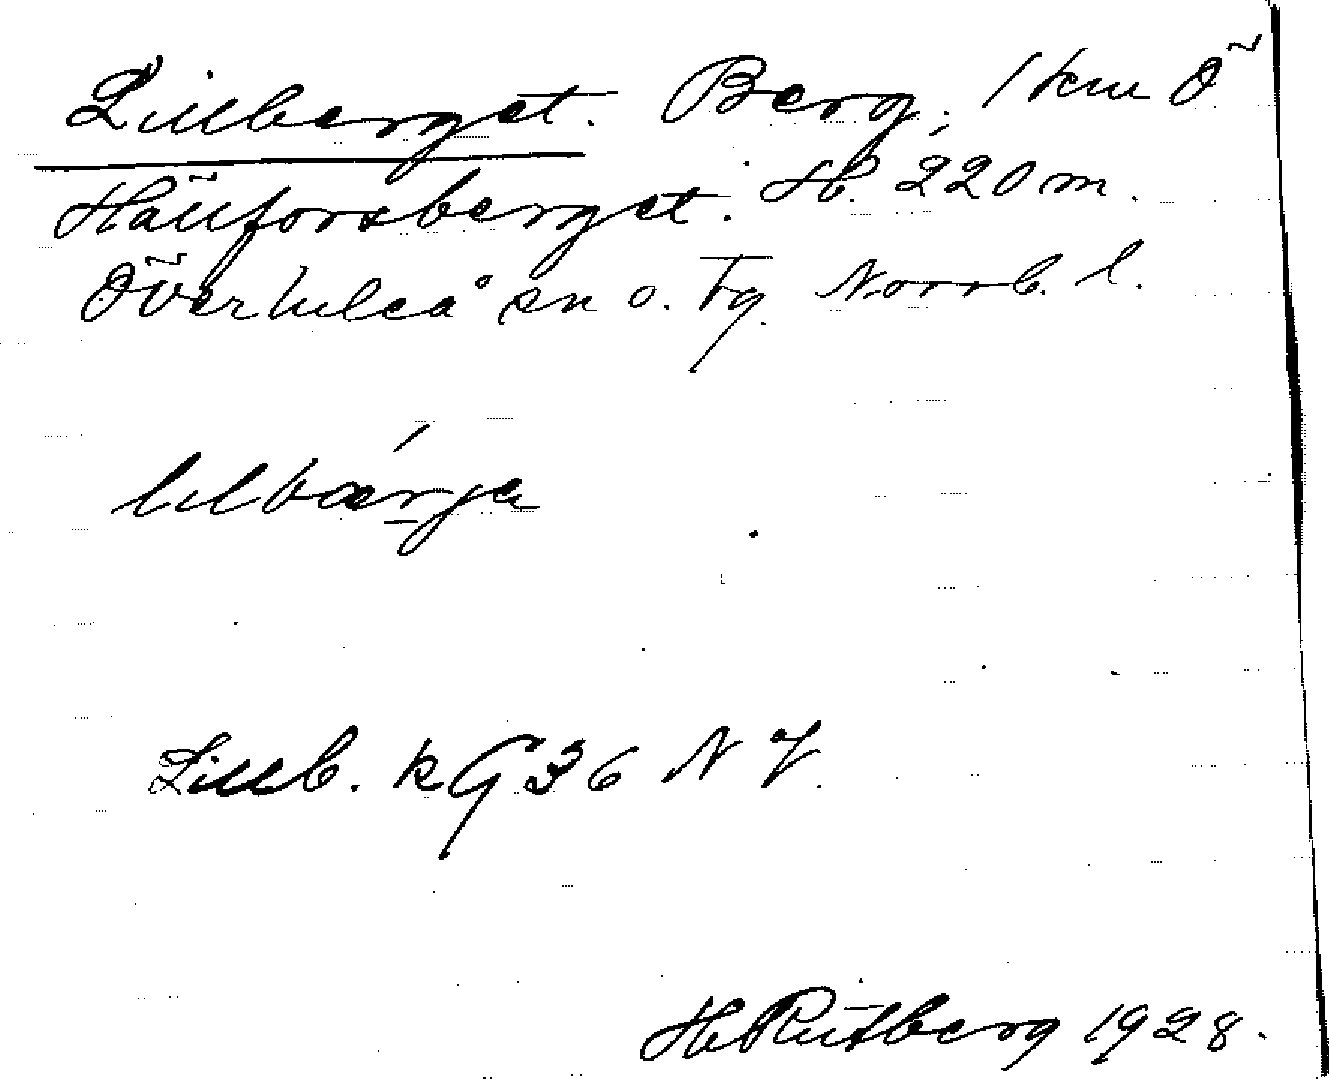 Lillberget. Berg, 1 km Ö
Hällforsberget. H. 220 m.
Överluleå sn o. tg. Norrb. l.
lilbærjə
Lillb. kG 36 NV.
H Rutberg 1928.